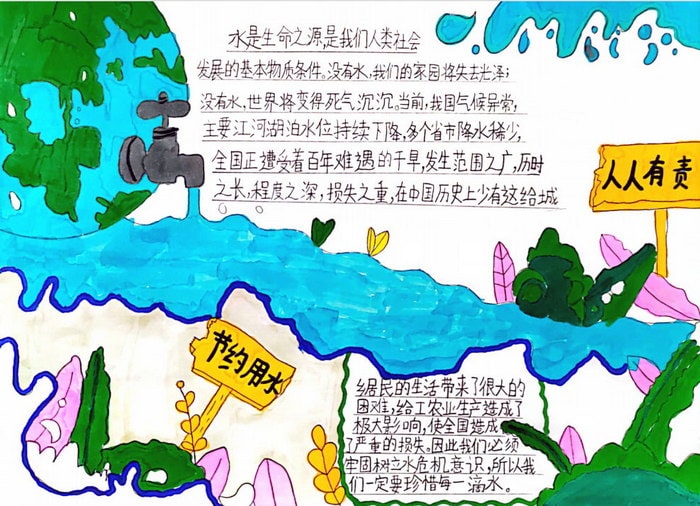 水是生命之源,是我们人类社会
发展的基本物质条件。没有水,我们的家园将失去光泽;
没有水,世界将变得死气沉沉。当前,我国气候异常,
主要江河湖泊水位持续下降,多个省市降水稀少,
全国正遭受着百年难遇的干旱,发生范围之广,历时
之长,程度之深,损失之重,在中国历史上少有这给城
人人有责
节约用水
乡居民的生活带来了很大的
困难,给工农业生产造成了
极大影响,使全国造成
了严重的损失。因此我们必须
牢固树立水危机意识,所以我
们一定要珍惜每一滴水。